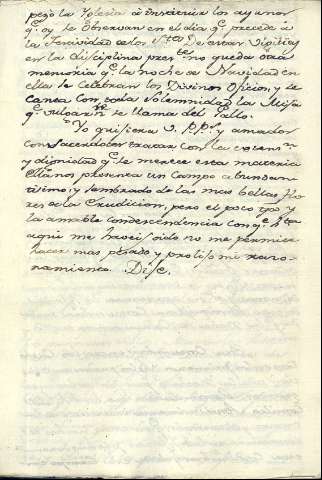 pezó la Iglesia à instituir los ayunos
q.e oy se observan en el dia q.e precede à
la Festividad de los S.tos De estas Vigilias
en la disciplina pres.te no queda otra
memoria q.e la noche de Navidad en
ella se celebran los Divinos Oficios, y se
canta con toda solemnidad la Missa
q.e vulgarm.te se llama del Gallo.
Yo quisiera S. PP. y amados
Consacerdotes tratar con la extens.n
y dignidad q.e se merece esta materia
Ella nos presenta un campo abundan
tisimo, y sembrado de las mas bellas flo
res de la erudicion, pero el poco tpo y
la amable condescendencia con q.e hta
aqui me haveis oido no me permite
hacer mas pesado y prolijo mi razo-
namiento. Dixe.